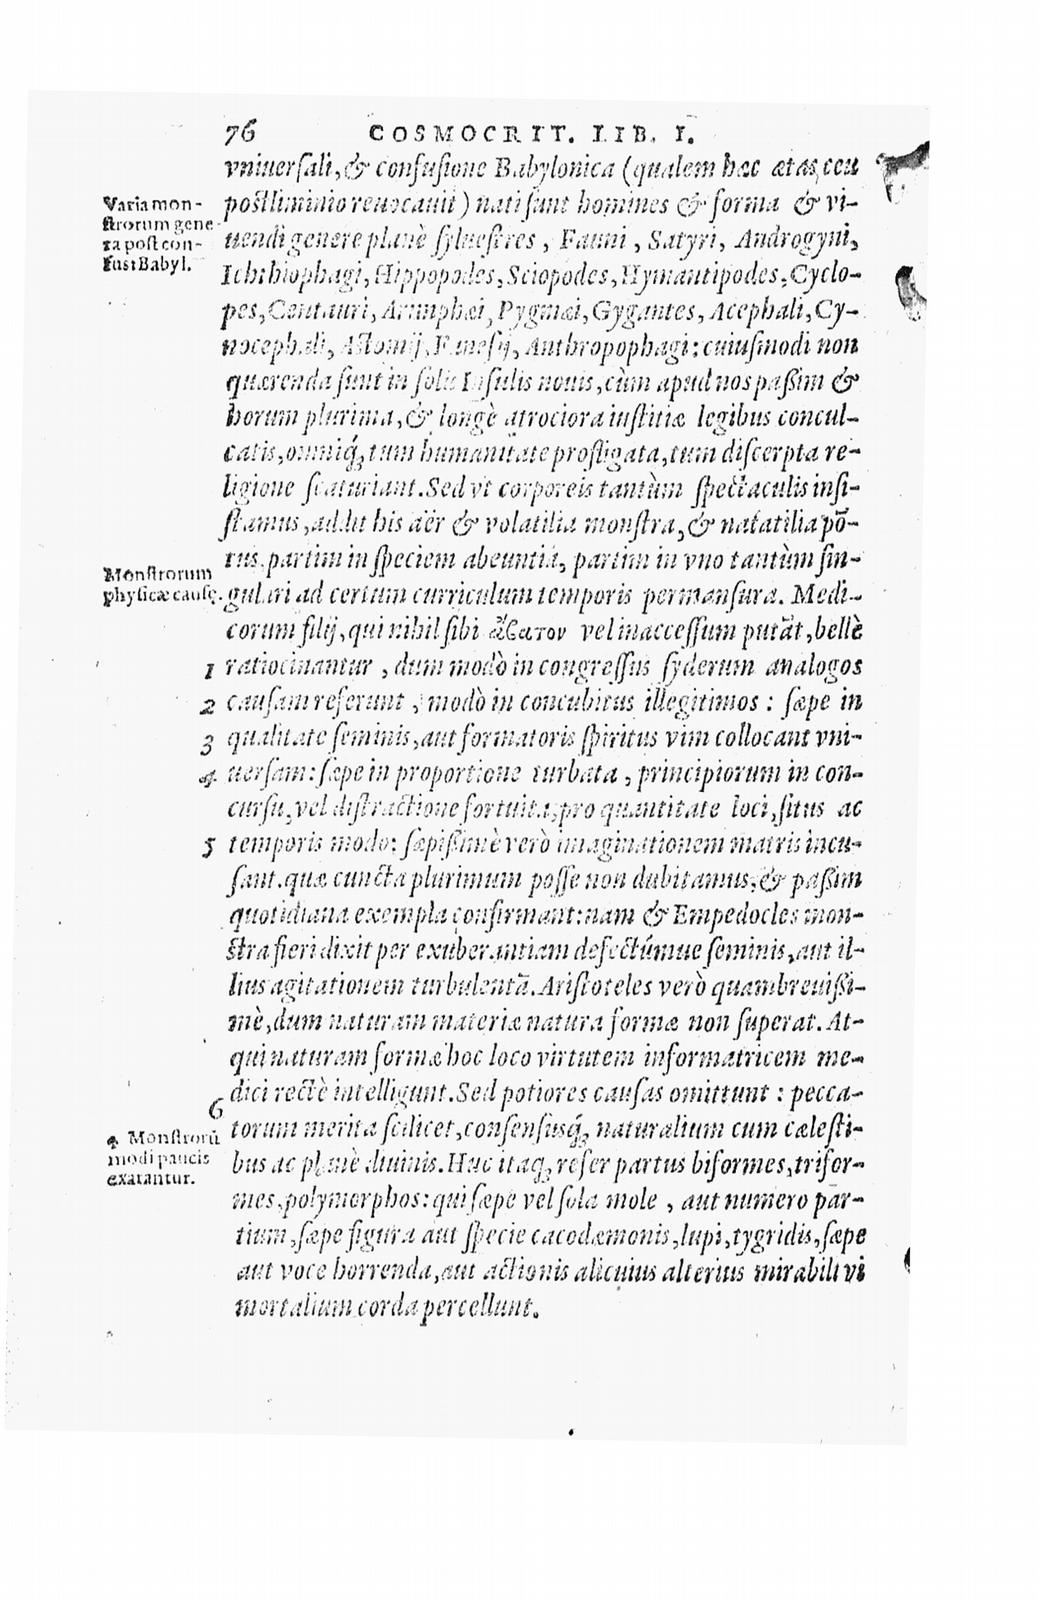 76 COSMOCRIT. LIB. I.
vniuersali, & confusione Babylonica (qualem hæc ætas, ceu
Varia mon-
strorum gene-
ra post con-
fus Babyl.
postliminio reuocauit) nati sunt homines & forma & vi-
uendi genere planè syluestres, Fauni, Satyri, Androgyni,
Ichthiophagi, Hippopodes, Sciopodes, Hymantipodes, Cyclo-
pes, Centauri, Arimphæi, Pygmæi, Gygantes, Acephali, Cy-
nocephali, Astomij, Fanesij, Anthropophagi: cuiusmodi non
quærenda sunt in solis Insulis nouis, cùm apud nos paßim &
horum plurima, & longè atrociora iustitiæ legibus concul-
catis, omniq́; tum humanitate profligata, tum discerpta re-
ligione scaturiant. Sed vt corporeis tantùm spectaculis insi-
stamus, addit his aër & volatilia monstra, & natatilia pō-
tus, partim in speciem abeuntia, partim in vno tantùm sin-
Monstrorum
physicæ causę.
gulari ad certum curriculum temporis permansura. Medi-
corum filij, qui nihil sibi ἄβατον vel inaccessum putāt, bellè
1 ratiocinantur, dum modò in congressus syderum analogos
2 causam referunt, modò in concubitus illegitimos: sæpe in
3 qualitate seminis, aut formatoris spiritus vim collocant vni-
4 uersam: sæpe in proportione turbata, principiorum in con-
cursu, vel distractione fortuita, pro quantitate loci, situs ac
5 temporis modo: sæpißimè verò imaginationem matris incu-
sant. quæ cuncta plurimum posse non dubitamus, & paßim
quotidiana exempla confirmant: nam & Empedocles mon-
stra fieri dixit per exuberantiam defectúmue seminis, aut il-
lius agitationem turbulentā. Aristoteles verò quambreuißi-
mè, dum naturam materiæ natura formæ non superat. At-
qui naturam formæ hoc loco virtutem informatricem me-
dici rectè intelligunt. Sed potiores causas omittunt: pecca-
6 torum merita scilicet, consensusq́; naturalium cum cælesti-
Monstrorū
modi paucis
exarantur.
bus ac planè diuinis. Huc itaq; refer partus biformes, trifor-
mes, polymorphos: qui sæpe vel sola mole, aut numero par-
tium, sæpe figura aut specie cacodæmonis, lupi, tygridis, sæpe
aut voce horrenda, aut actionis alicuius alterius mirabili vi
mortalium corda percellunt.